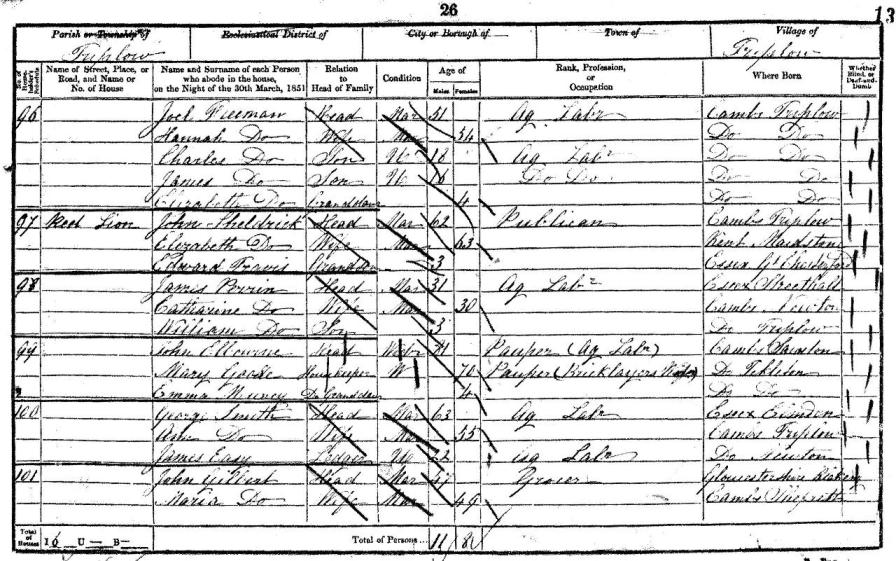 26
13
Parish or Township of
Ecclesiastical District of
City or Borough of
Town of
Village of
Triplow
Triplow
No. of Householder's Schedule
Name of Street, Place, or Road, and Name or No. of House
Name and Surname of each Person who abode in the house, on the Night of the 30th March, 1851
Relation to Head of Family
Condition
Age of
Males
Females
Rank, Profession, or Occupation
Where Born
Whether Blind, or Deaf-and-Dumb
96 Joel Freeman Head Mar 51 Ag Labr Cambs Triplow
Hannah Do Wife Mar 54 Do Do
Charles Do Son U 18 Ag Labr Do Do
James Do Son U 16 Do Do Do Do
Elizabeth Do Granddaur 4 Do Do
97 Red Lion John Sheldrick Head Mar 62 Publican Cambs Triplow
Elizabeth Do Wife Mar 63 Kent Maidstone
Edward Travis Grandson 3 Essex Gt Chesterford
98 James Perrin Head Mar 31 Ag Labr Essex Streethall
Catharine Do Wife Mar 30 Cambs Newton
William Do Son 3 Do Triplow
99 John Head Widr 71 Pauper (Ag Labr) Cambs
Mary Goode Housekeeper W 70 Pauper (Bricklayers Do
Emma Muncy Do Granddaur 4 Do Do
100 George Smith Head Mar 63 Ag Labr Essex
Ann Do Wife Mar 55 Cambs Triplow
James Easy Lodger U 22 Ag Labr Do Newton
101 John Gilbert Head Mar Grocer Gloucestershire
Maria Do Wife Mar 49 Cambs Shepreth
Total of Houses 16 U — B —
Total of Persons... 11 8